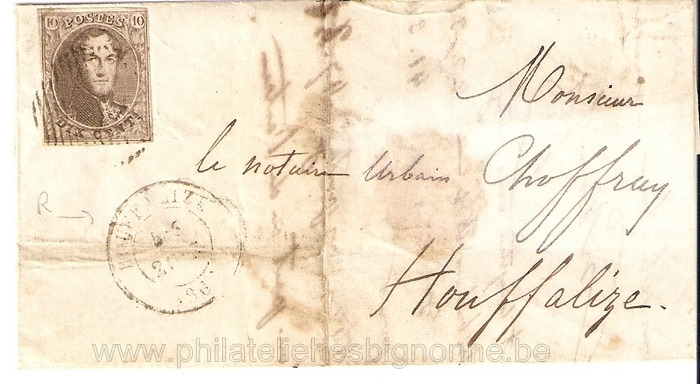 10 POSTES 10
DIX CENTS
Monsieur
le notaire Urbain Choffray
Houffalize.
R
HOUFFALIZE
www.philateliehesbignonne.be